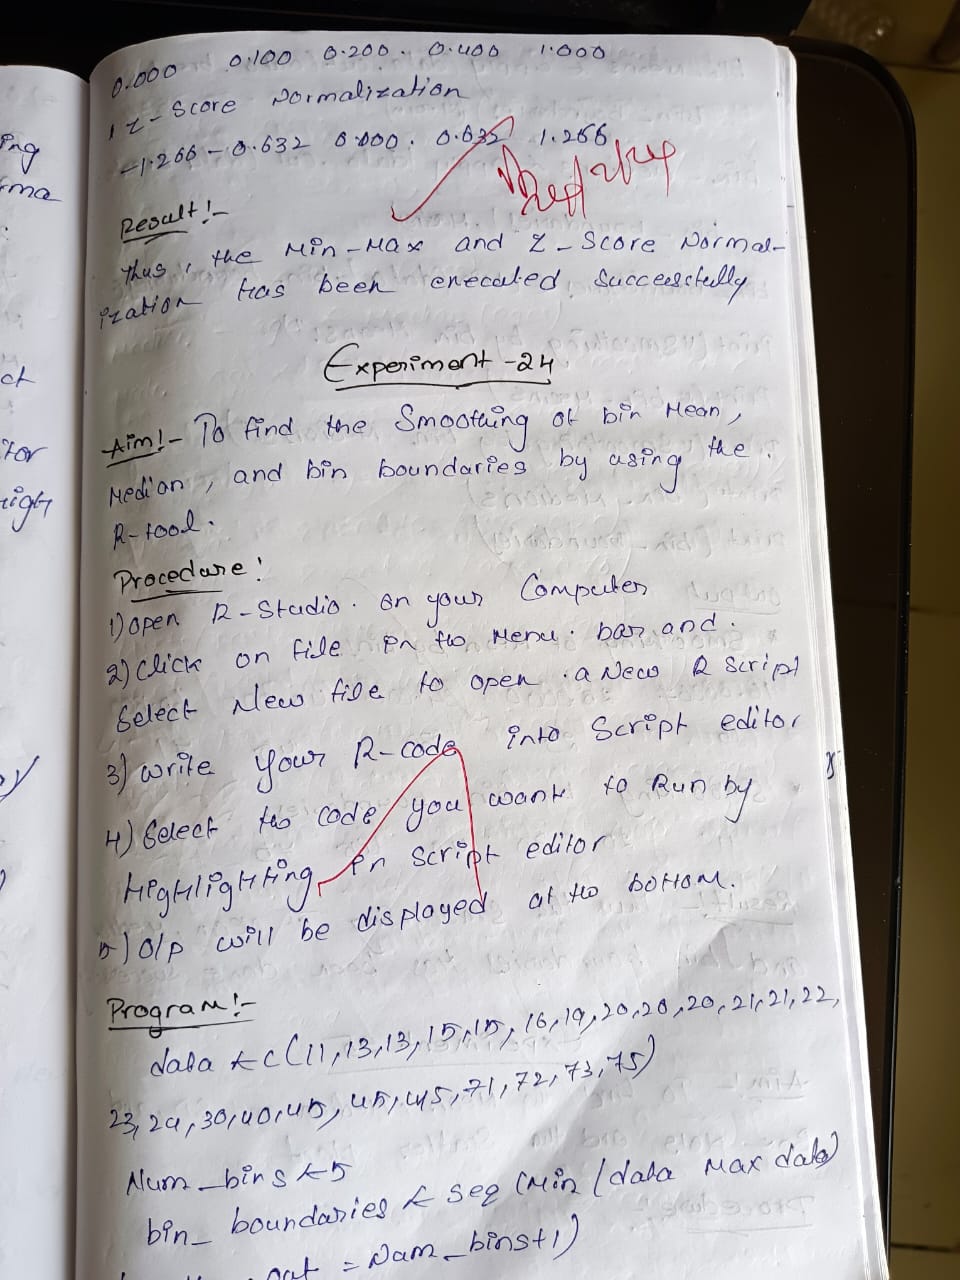 0.000 0.100 0.200. 0.400 1.000
Z-Score Normalization
-1.266 -0.632 0.000. 0.632 1.266
Result!-
Thus, the Min-Max and Z-Score Normal-
ization Has been executed Successfully
Experiment-24
Aim!- To find the Smoothing of bin Mean,
Median, and bin boundaries by using the.
R-tool.
Procedure!
1) open R-Studio. on your Computer
2) click on file in the Menu. bar and.
Select New file to open a New R Script
3) write your R-code into Script editor
4) Select the code you want to Run by
HigHligHting in Script editor
5) O/p will be displayed at the bottom.
Program!-
data <- c(11,13,13,15,15,16,19,20,20,20,21,21,22,
23,24,30,40,45,45,45,71,72,73,75)
Num_bins <- 5
bin_ boundaries <- seq (Min (data Max data)
= Num_bins+1)
ing
rma
ct
tor